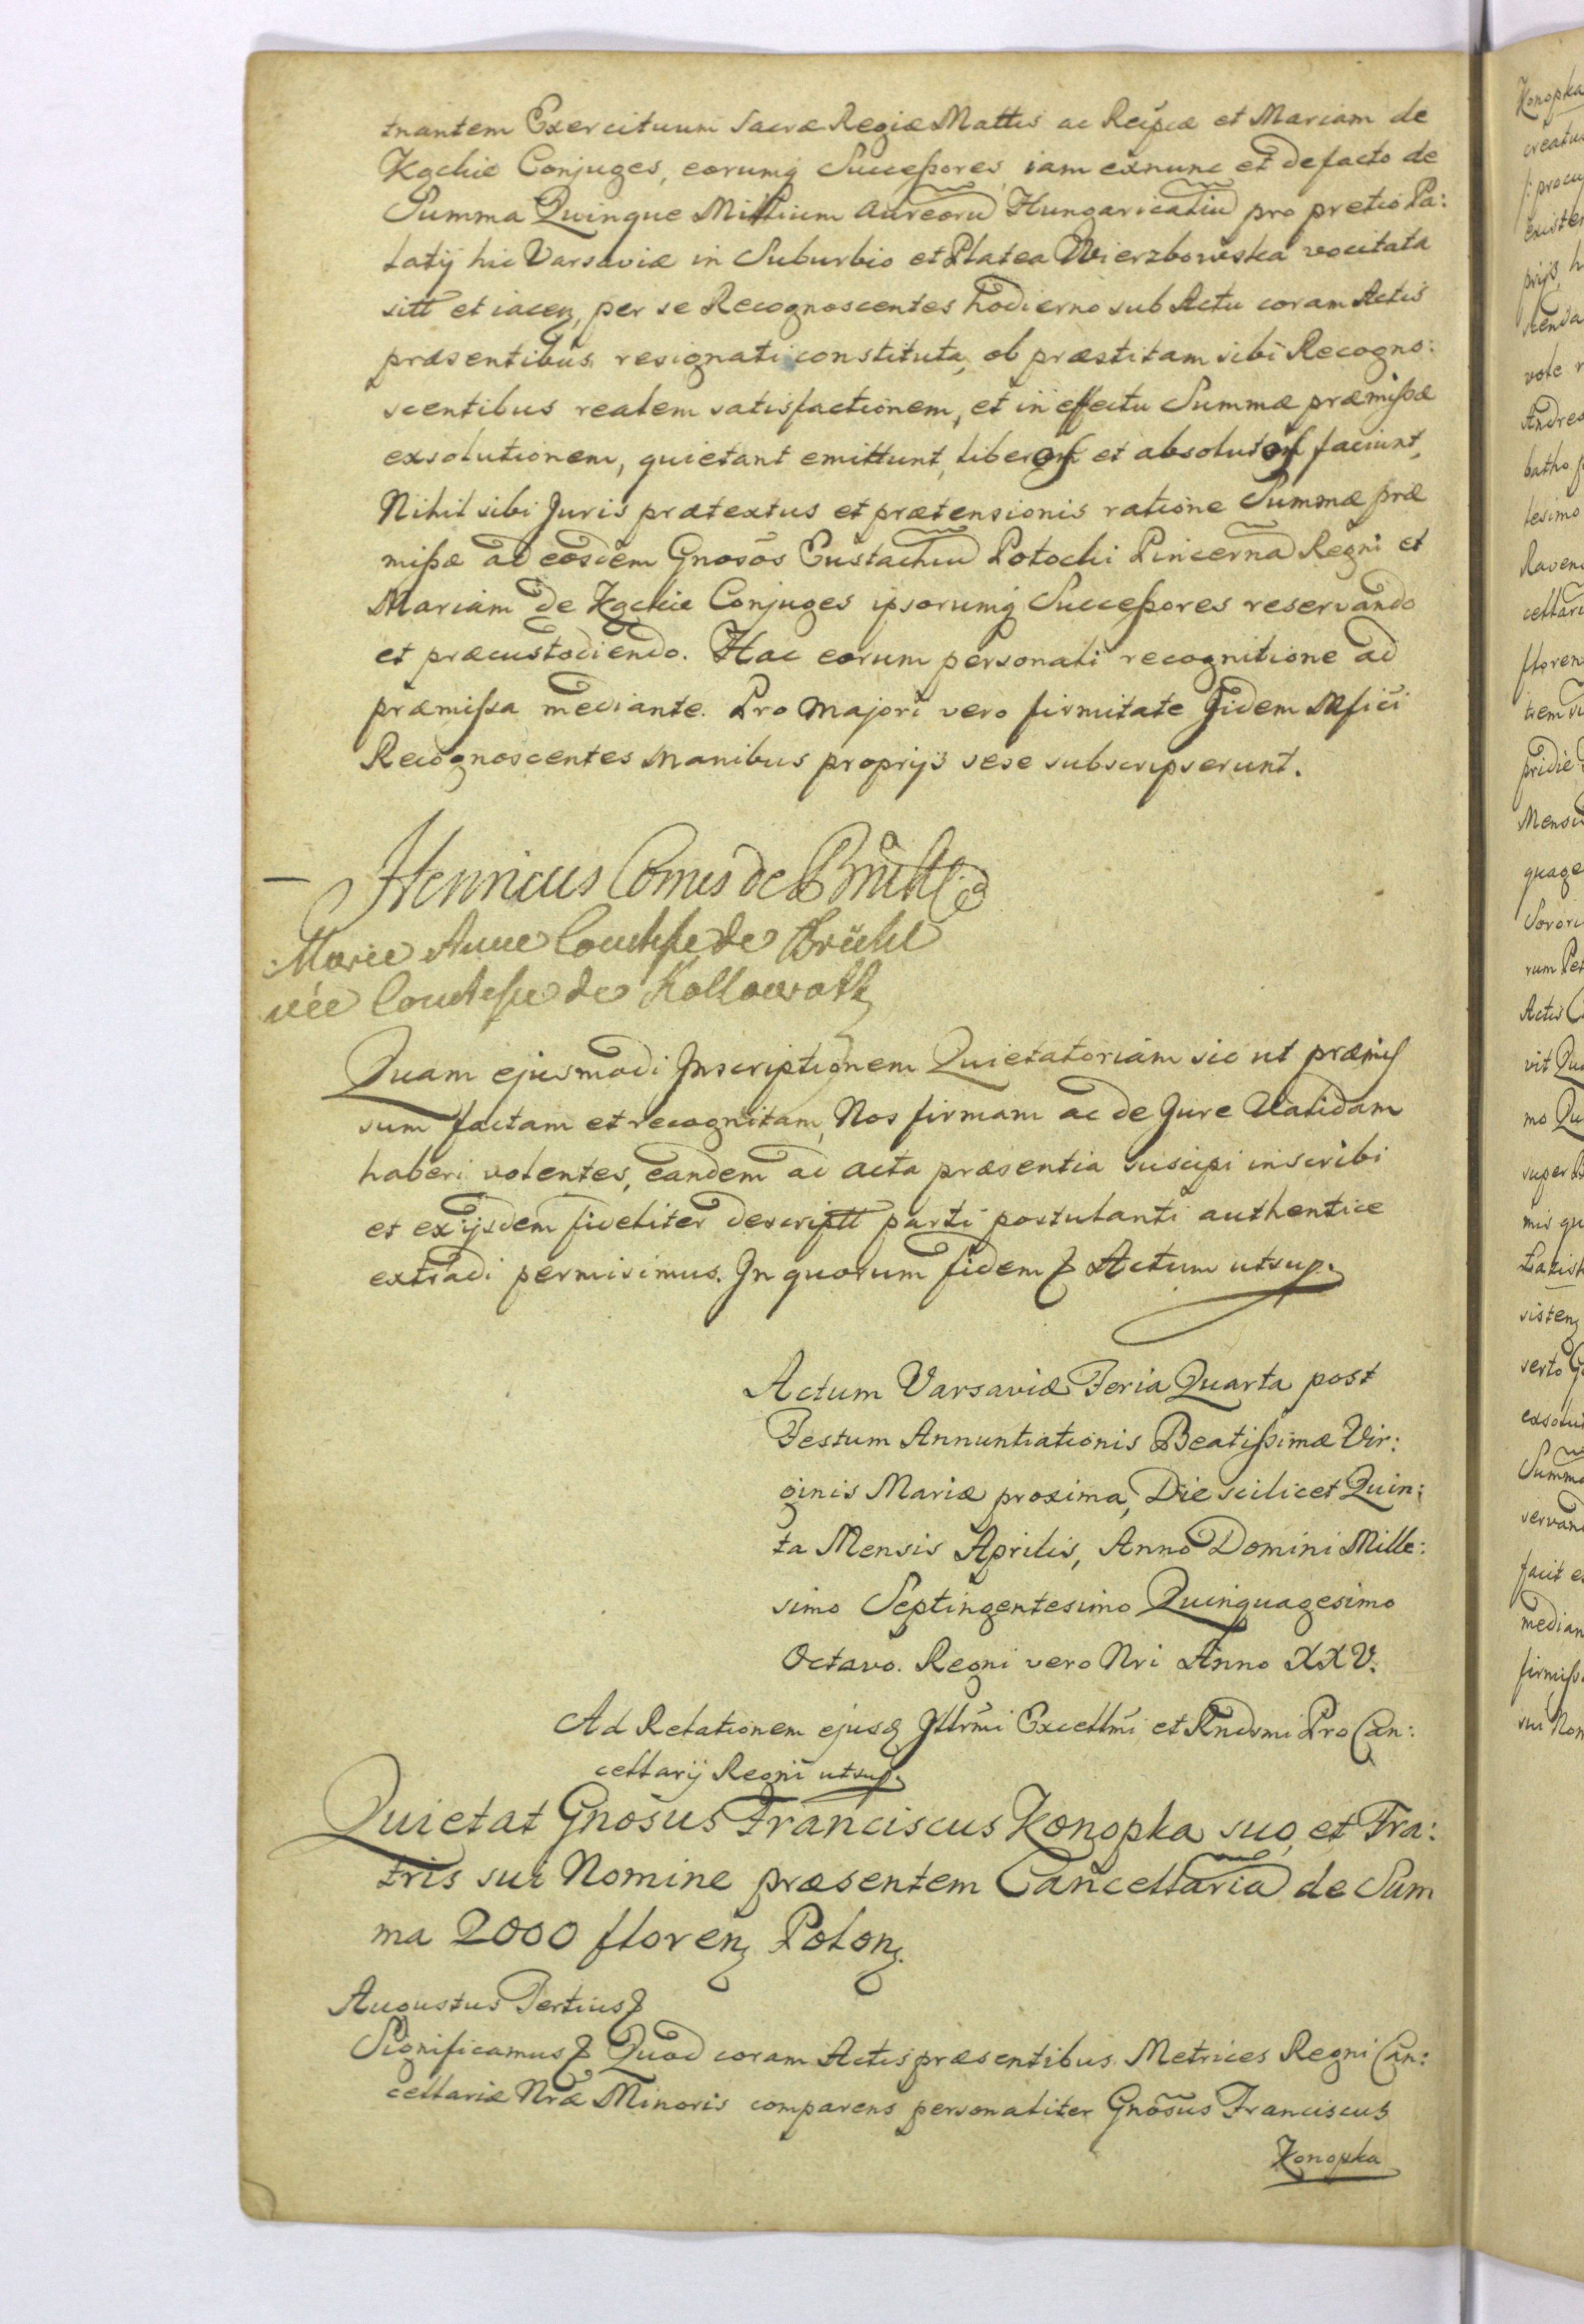 tnantem Exercituum Sacræ Regiæ Mattis ac Reipcæ et Mariam de
Kąckie Conjuges, eorumq Successores, iam exnunc et defacto de
Summa Quinque Millium Aureorū Hungaricaliū pro pretio Pa:
latij hic Varsaviæ in Suburbio et Platea Wierzbowska vocitata
sitt et iacen, per se Recognoscentes hodierno sub Actu coram Actis
præsentibus resignati constituta, ob præstitam sibi Recogno:
scentibus realem satisfactionem, et in effectu Summæ præmissæ
exsolutionem, quietant emittunt, liberos et absolutos faciunt,
Nihil sibi Juris prætextus et prætensionis ratione Summæ præ
missæ ad eosdem Gnosōs Eustachiū Potocki Pincernā Regni et
Mariam de Kąckie Conjuges ipsorumq Successores reservando
et præcustodiendo. Hac eorum personali recognitione ad
præmissa mediante. Pro majori vero firmitate Jidem Mfici
Recognoscentes manibus proprijs sese subscripserunt.
Henricus Comes de Brühl
Marie Anne Comtesse de Brühl
née Comtesse de Kollowrath
Quam ejusmodi Inscriptionem Quietatoriam sic ut præmis
sum factam et recognitam, Nos firmam ac de Jure Validam
haberi volentes, eandem ad acta præsentia suscipi inscribi
et ex ijsdem fideliter descriptt parti postulanti authentice
extradi permisimus. In quorum fidem & Actum utsup.
Actum Varsaviæ Feria Quarta post
Festum Annuntiationis Beatissimæ Vir:
ginis Mariæ proxima, Die scilicet Quin:
ta Mensis Aprilis, Anno Domini Mille:
simo Septingentesimo Quinquagesimo
Octavo. Regni vero Nri Anno XXV.
Ad Relationem ejusd Illrmi Excellmi et Rndsmi Pro Can:
cellarij Regni utsup.
Quietat Gnosus Franciscus Konopka suo, et Fra:
tris sui Nomine præsentem Cancellariā de Sum
ma 2000 floren Polon.
Augustus Tertius &
Significamus & Quod coram Actis præsentibus Metrices Regni Can:
cellariæ Nræ Minoris comparens personaliter Gnosus Franciscus
Konopka